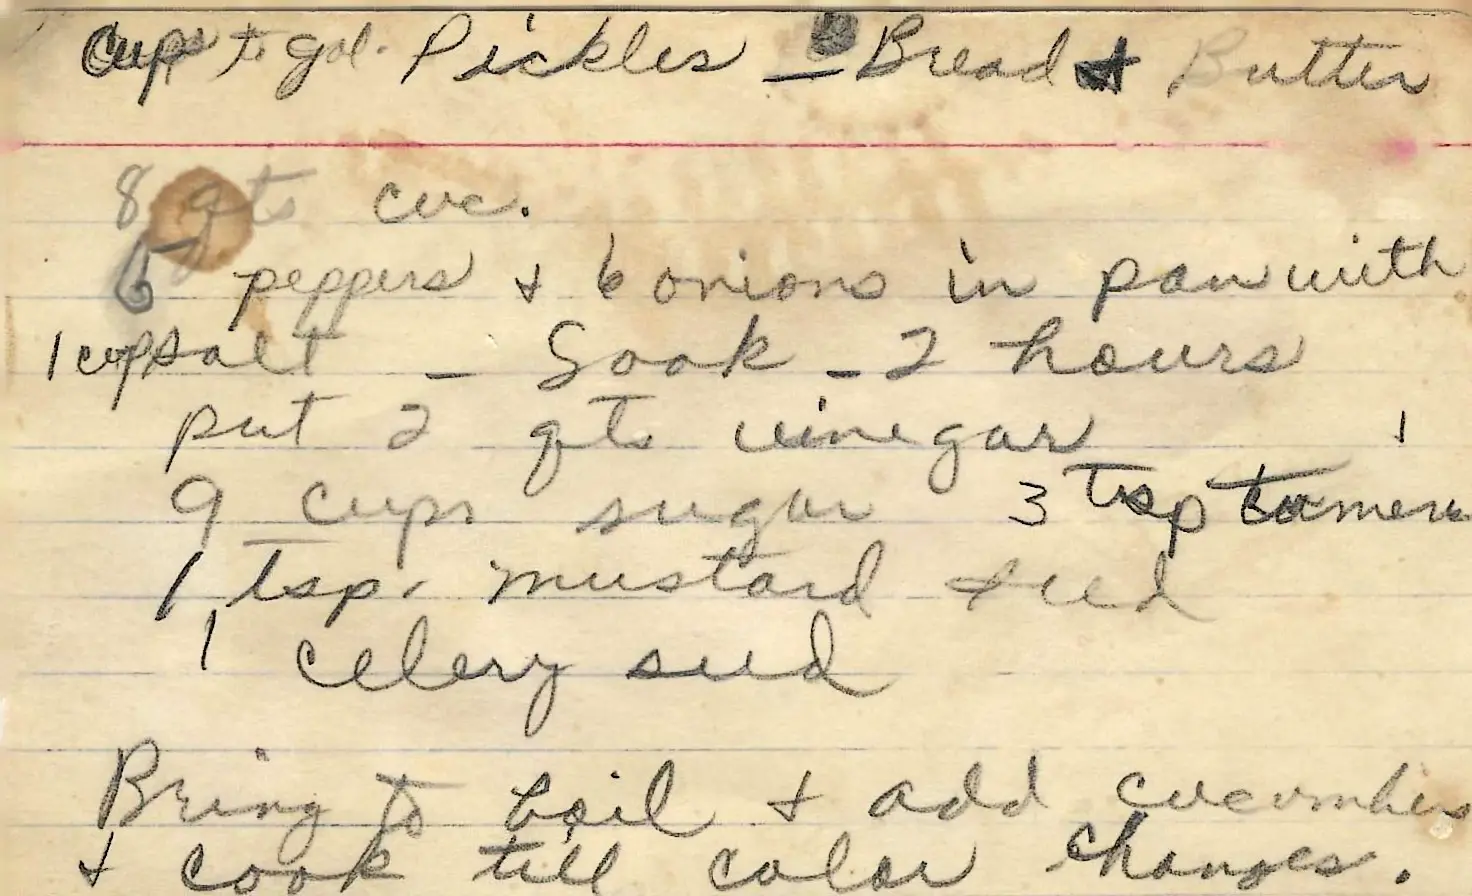 Cups to gal. Pickles – Bread & Butter
8 qts cuc.
6 peppers & 6 onions in pan with
1 cup salt – Soak – 2 hours
put 2 qts vinegar 1
9 cups sugar 3 tsp
1 tsp. mustard seed
1 celery seed
Bring to boil & add cucumbers
& cook till color changes.